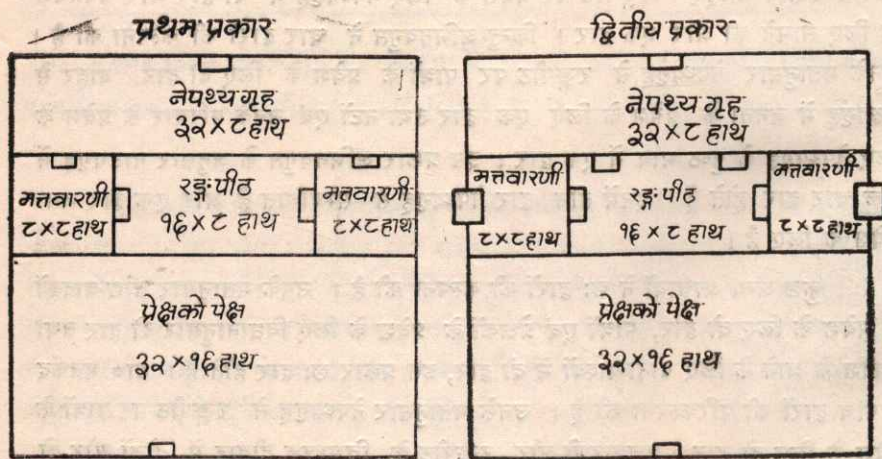 प्रथम प्रकार
नेपथ्य गृह
३२×८ हाथ
मत्तवारणी
८×८हाथ
रङ्गपीठ
१६ × ८ हाथ
मत्तवारणी
८×८हाथ
प्रेक्षको पेक्ष
३२×१६ हाथ
द्वितीय प्रकार
नेपथ्य गृह
३२×८ हाथ
मत्तवारणी
८×८हाथ
रङ्गपीठ
१६ × ८ हाथ
मत्तवारणी
८×८हाथ
प्रेक्षको पेक्ष
३२×१६ हाथ